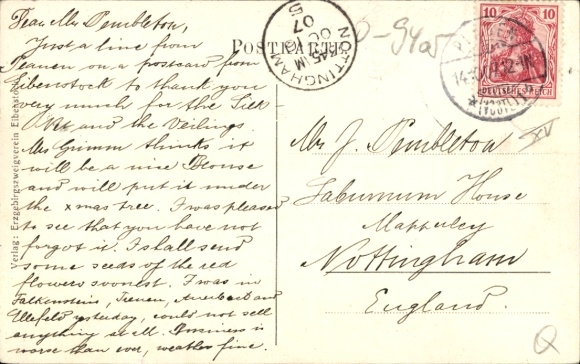 Dear Mr Pembleton,
Just a line from
Plauen on a postcard from
Eibenstock to thank you
very much for the Silk
and the Veilings
Mrs Grimm thinks it
will be a nice Blouse
and will put it under
the xmas tree. I was pleased
to see that you have not
forgot it. I shall send
some seeds of the red
flowers soonest. I was in
Falkenstein, Treuen, Auerbach and
Ellefeld yesterday, could not sell
anything at all. Business is
worse than ever, weather fine.
POSTKARTE
NOTTINGHAM
6.45 AM
OC 16
07
5
10 10
DEUTSCHES REICH
Mr J. Pembleton
Laburnum House
Mapperley
Nottingham
England.
Verlag: Erzgebirgszweigverein Eibenstock
Q